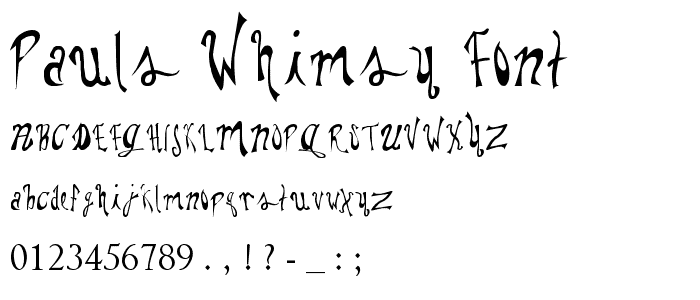 Pauls Whimsy Font
ABCDEFGHISKLMNOPQRSTUVWXYZ
abcdefghijklmnopqrstuvwxyz
0123456789 . , ! ? - _ : ;